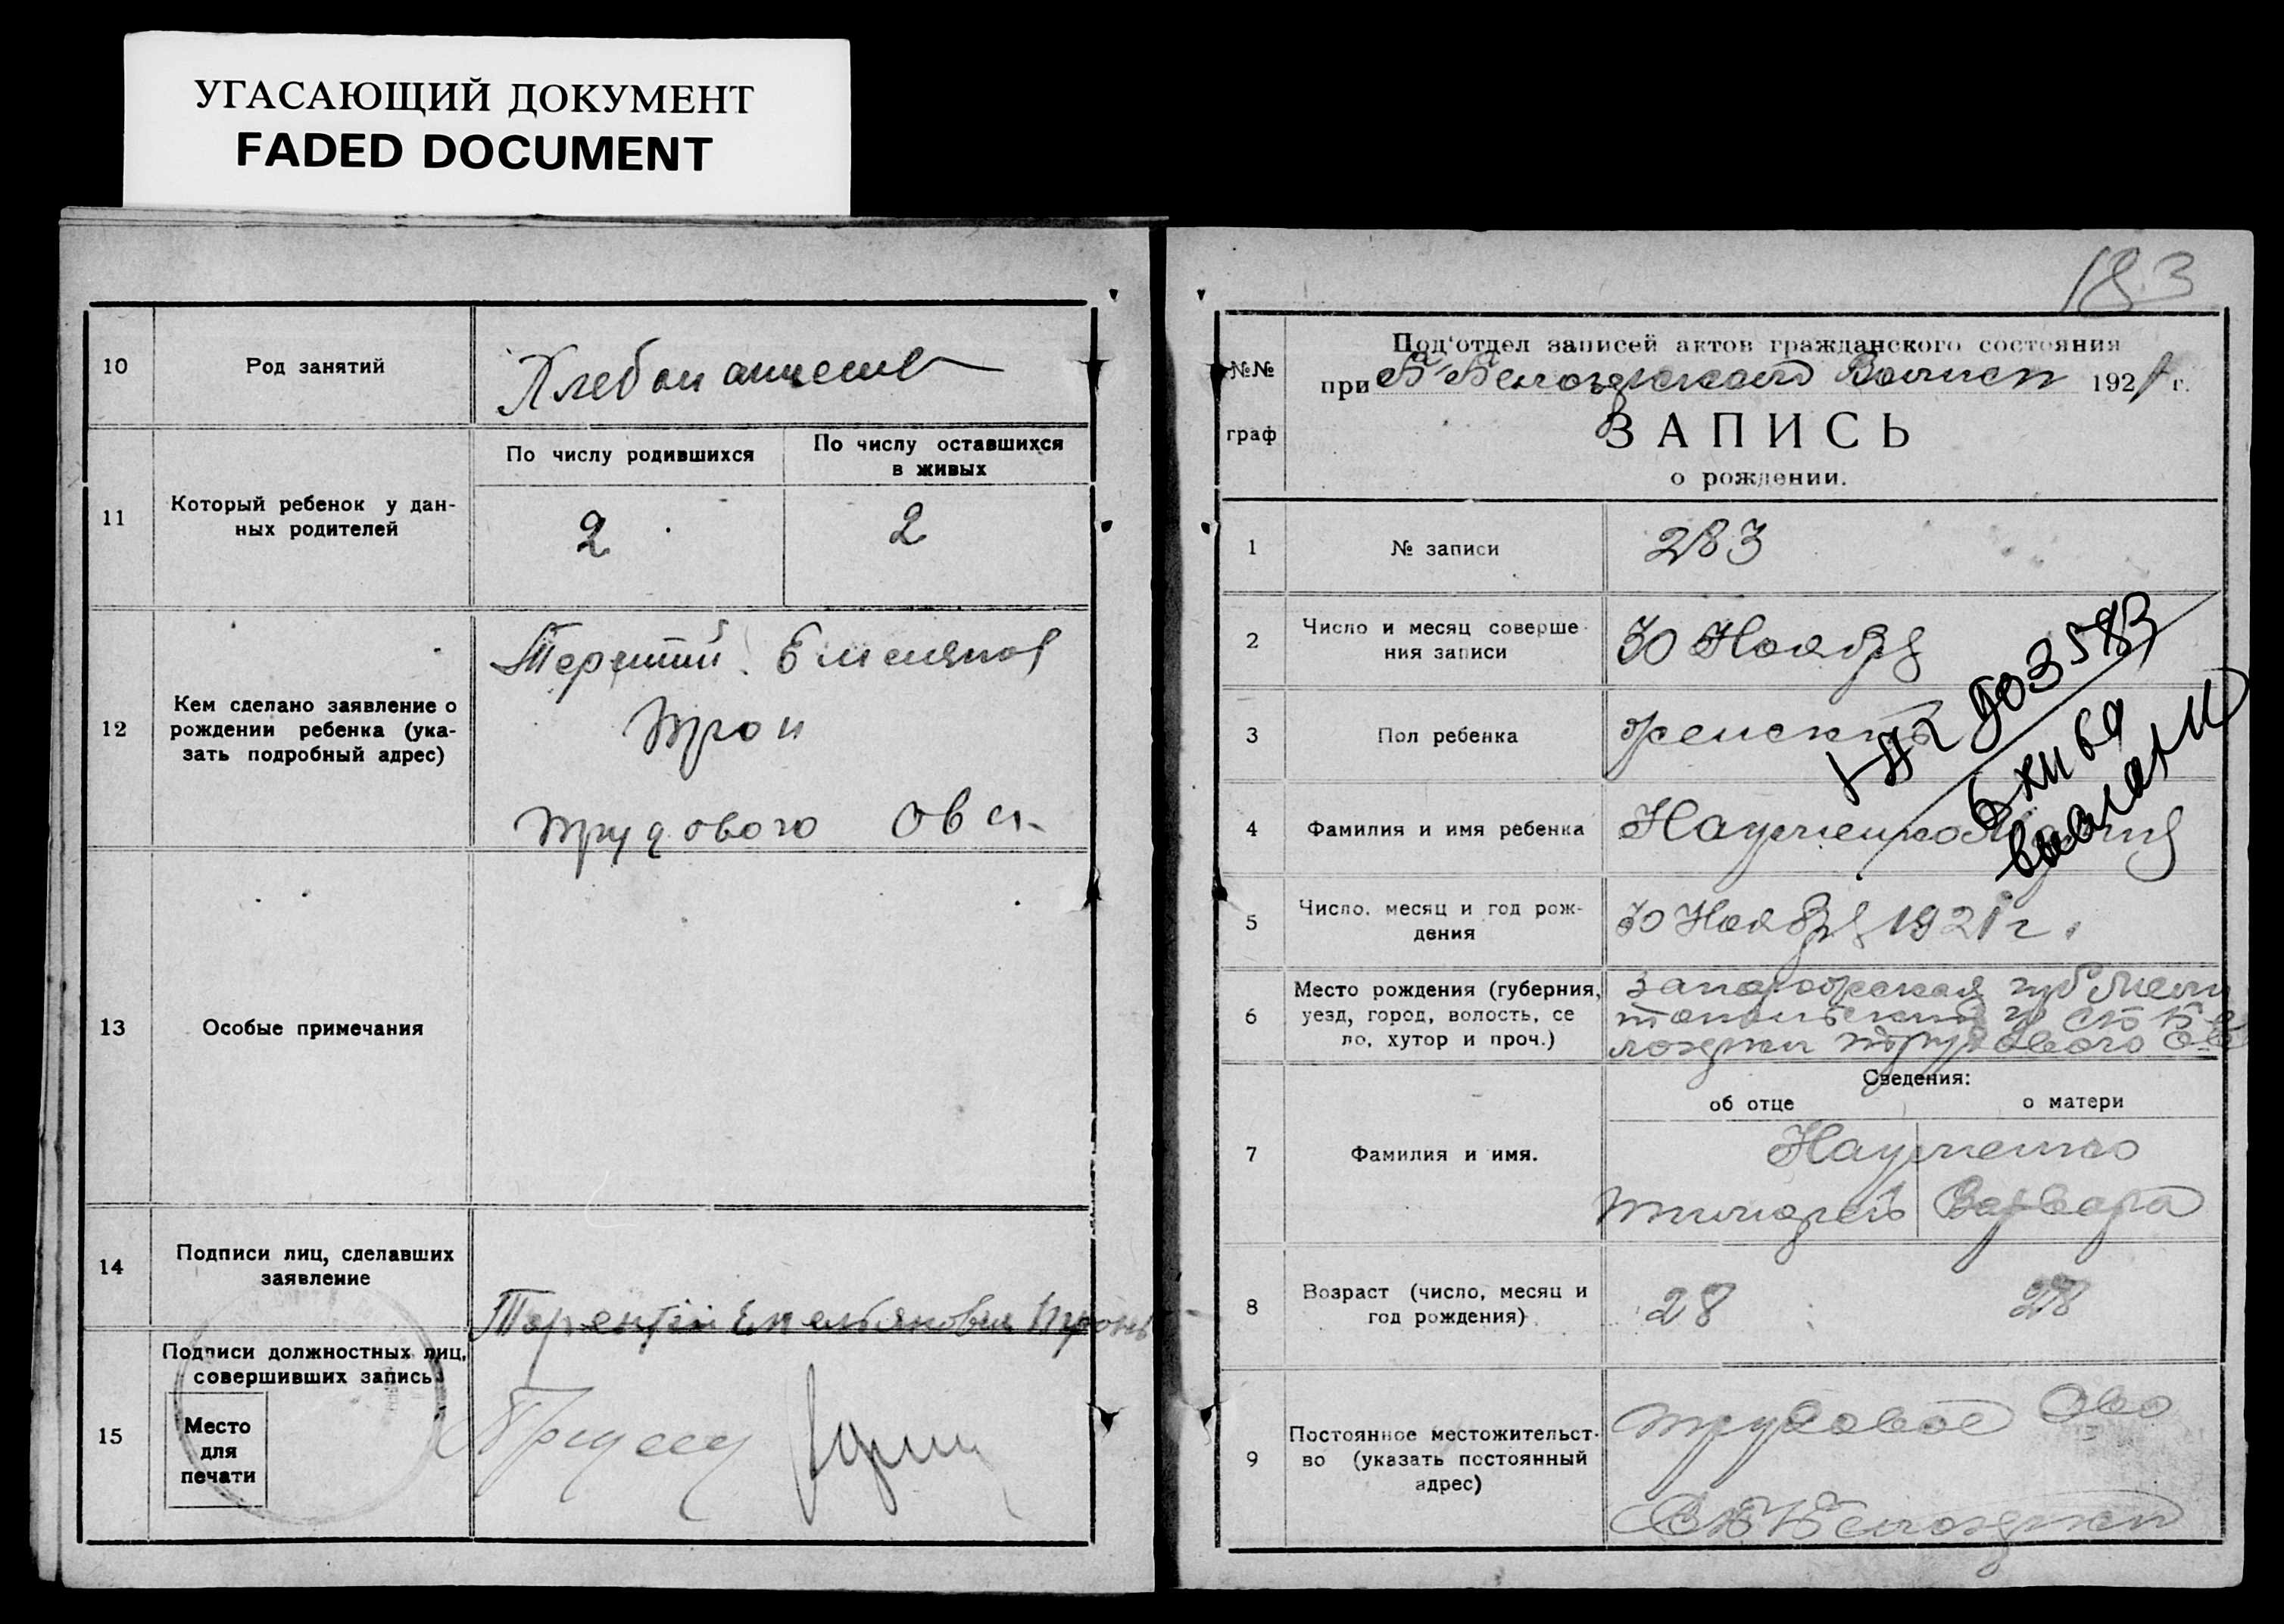 УГАСАЮЩИЙ ДОКУМЕНТ
FADED DOCUMENT
10
Род занятий
11
Который ребенок у дан-
ных родителей
По числу родившихся
По числу оставшихся
в живых
2
2
12
Кем сделано заявление о
рождении ребенка (ука-
зать подробный адрес)
Трон
трудового Ова
13
Особые примечания
14
Подписи лиц, сделавших
заявление
Терентій Емельяновъ
15
Подписи должностных лиц,
совершивших запись
Место
для
печати
183
№№
граф
Под'отдел записей актов гражданского состояния
при 1921 г.
ЗАПИСЬ
о рождении.
1
№ записи
283
2
Число и месяц соверше-
ния записи
30 Ноября
3
Пол ребенка
женский
4
Фамилия и имя ребенка
Науменко
5
Число, месяц и год рож-
дения
30 Ноября 1921 г.
6
Место рождения (губерния,
уезд, город, волость, се
ло, хутор и проч.)
Запорожская губ Мели
трудового
Сведения:
об отце
о матери
7
Фамилия и имя.
Науменко
Тимофей Варвара
8
Возраст (число, месяц и
год рождения)
28
28
9
Постоянное местожительст-
во (указать постоянный
адрес)
трудовое Ово